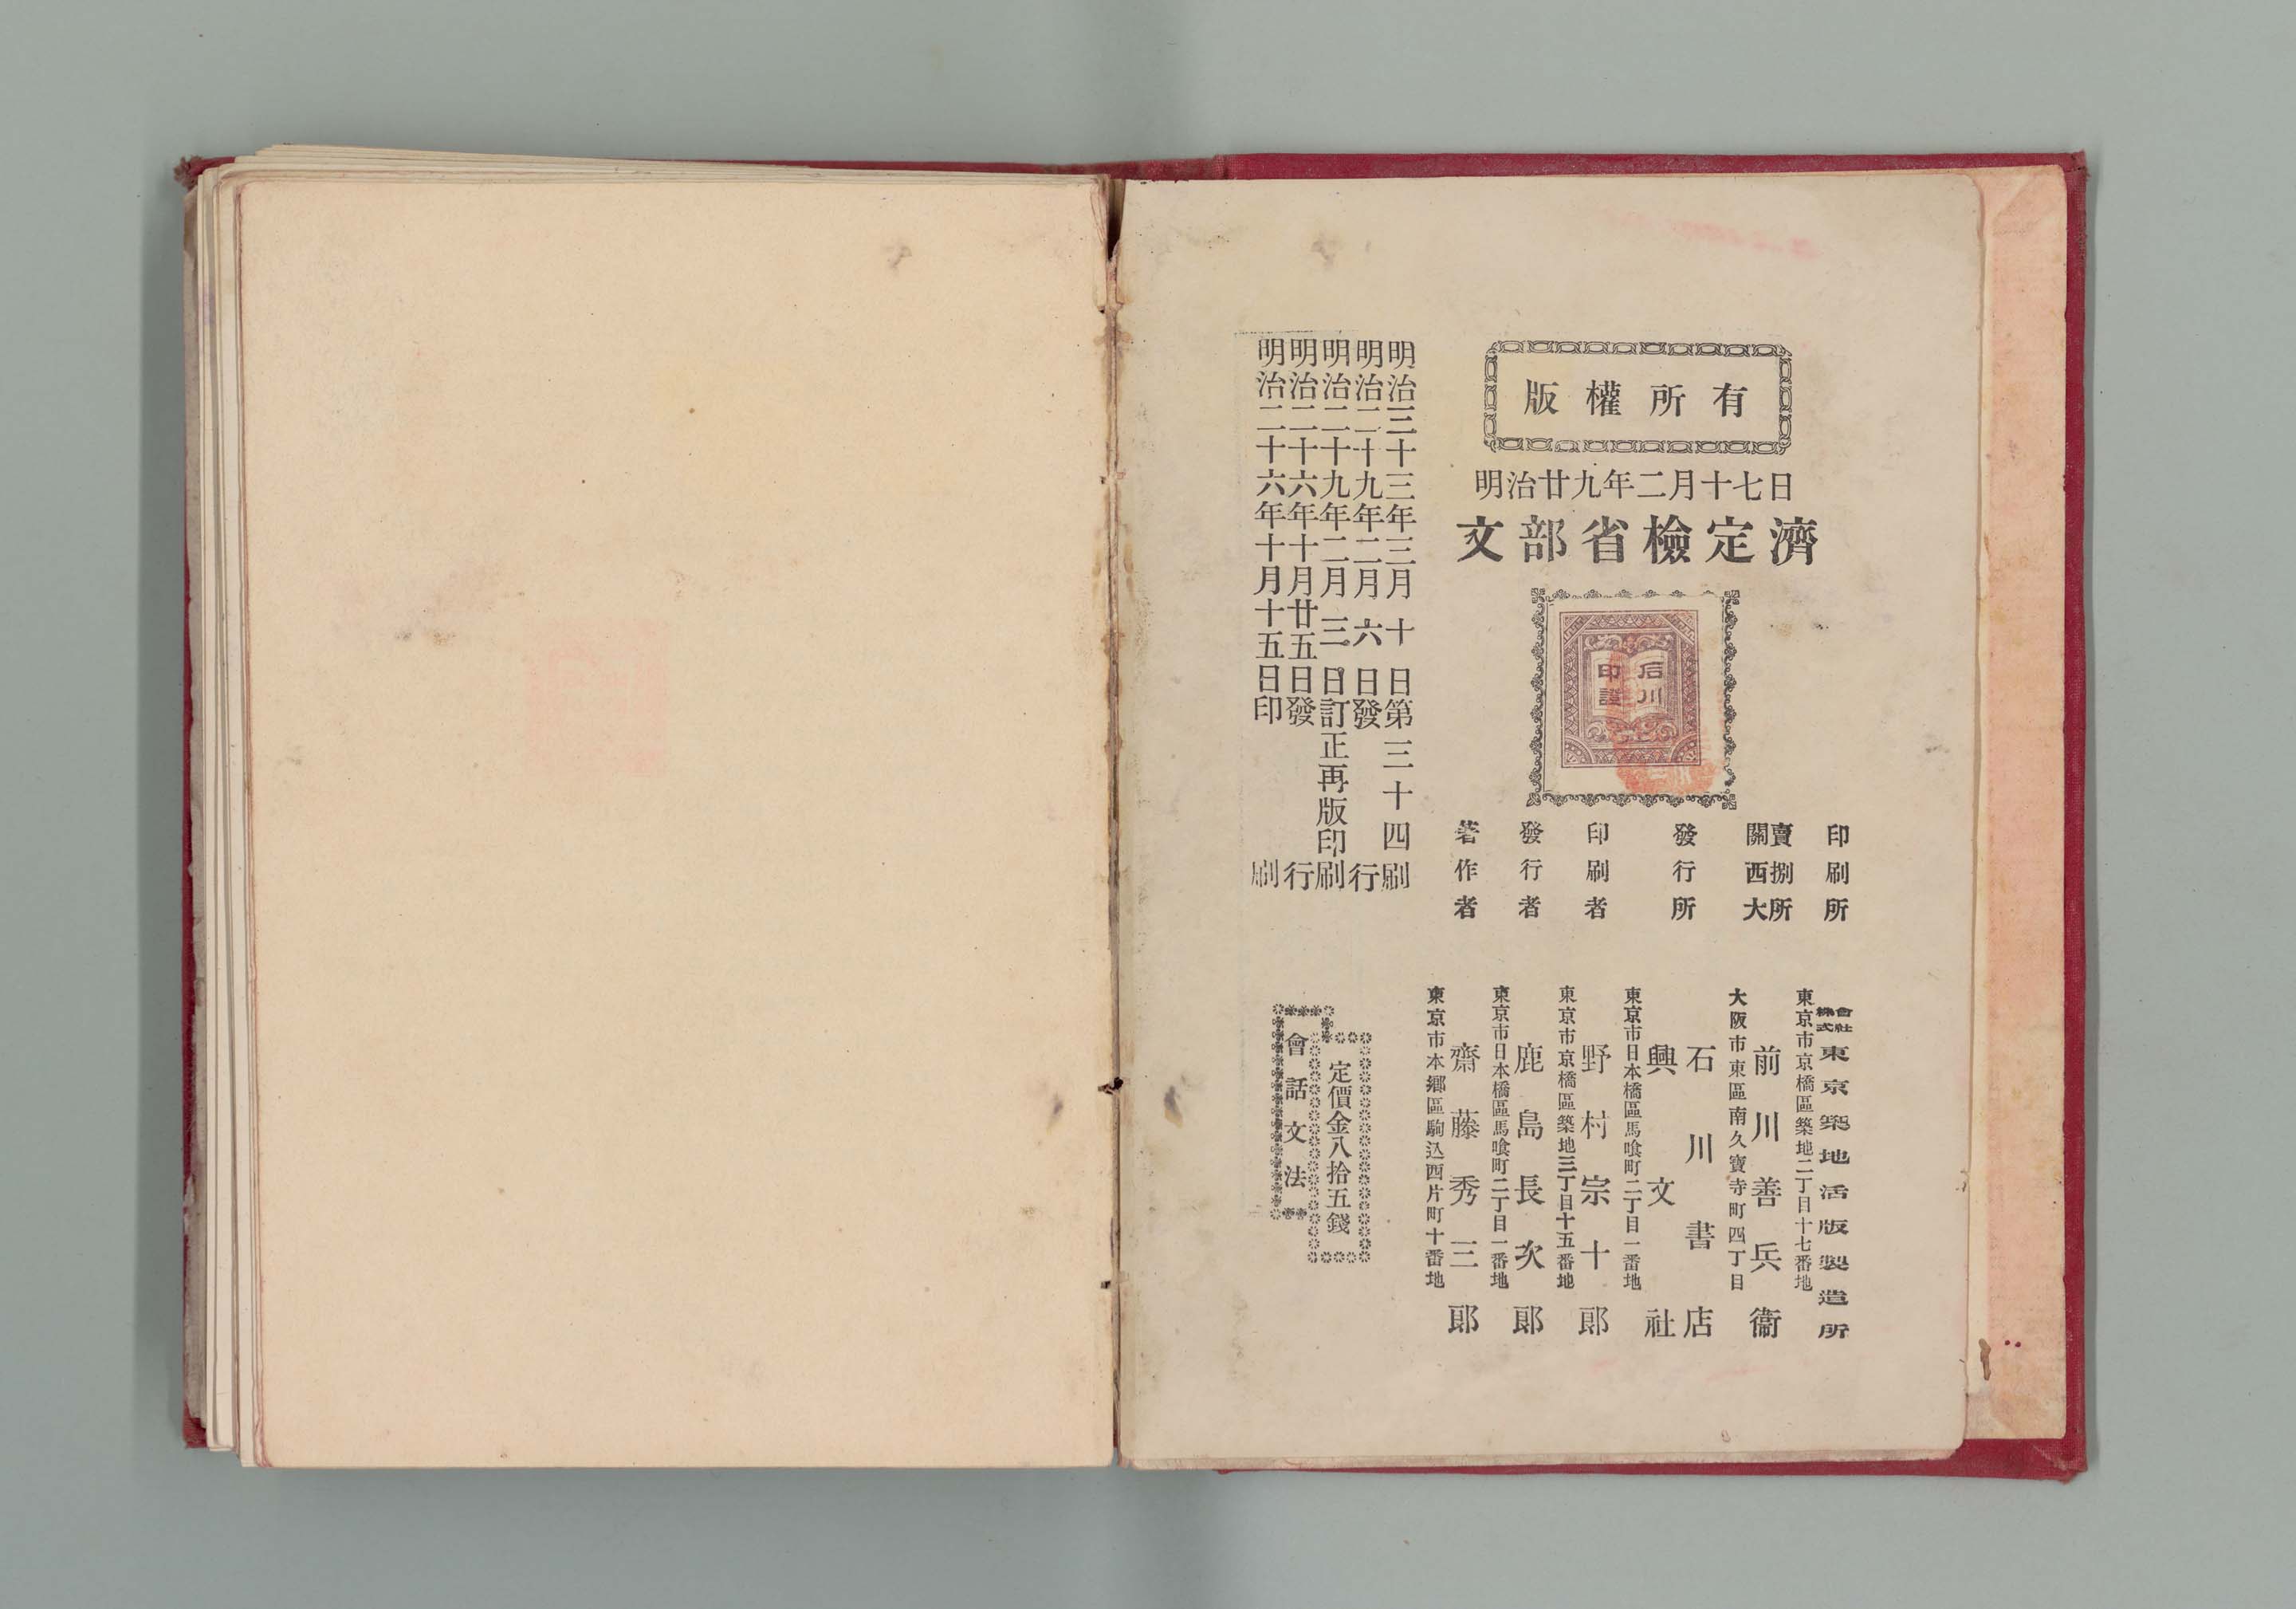 版權所有
明治廿九年二月十七日
文部省檢定濟
石川
印證
明治二十六年十月十五日印刷
明治二十六年十月廿五日發行
明治二十九年二月三日訂正再版印刷
明治二十九年二月六日發行
明治三十三年三月十日第三十四刷
會話文法
定價金八拾五錢
東京市本鄉區駒込西片町十番地
著作者 齋藤秀三郎
東京市日本橋區馬喰町二丁目一番地
發行者 鹿島長次郎
東京市京橋區築地三丁目十五番地
印刷者 野村宗十郎
東京市日本橋區馬喰町二丁目一番地
興文社
發行所
石川書店
大阪市東區南久寶寺町四丁目
關西大賣捌所 前川善兵衞
東京市京橋區築地二丁目十七番地
印刷所 株式會社東京築地活版製造所